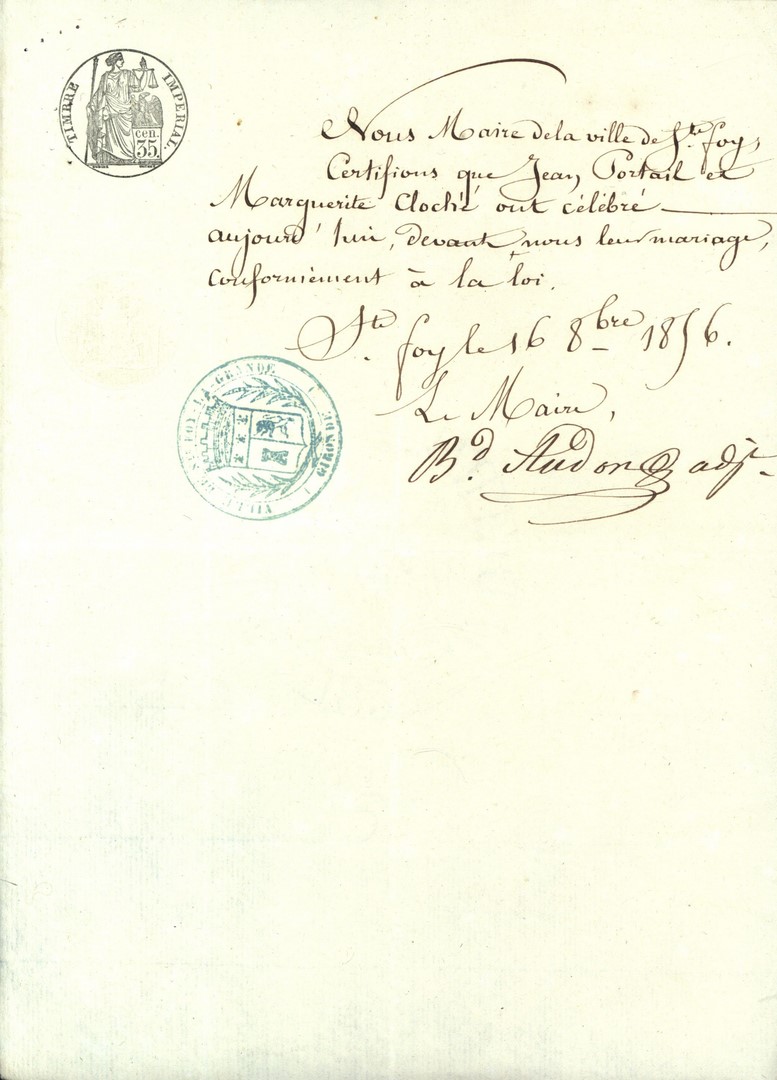 TIMBRE IMPERIAL.
cen.
35.
Nous Maire de la ville de Ste. foy,
Certifions que Jean Portail et
Marguerite Cloché ont célébré
aujourd'hui, devant nous leur mariage,
conformément à la loi.
Ste. foy le 16 8bre 1856.
Le Maire,
Bd. Audon adjt
VILLE DE STE FOY-LA-GRANDE
GIRONDE